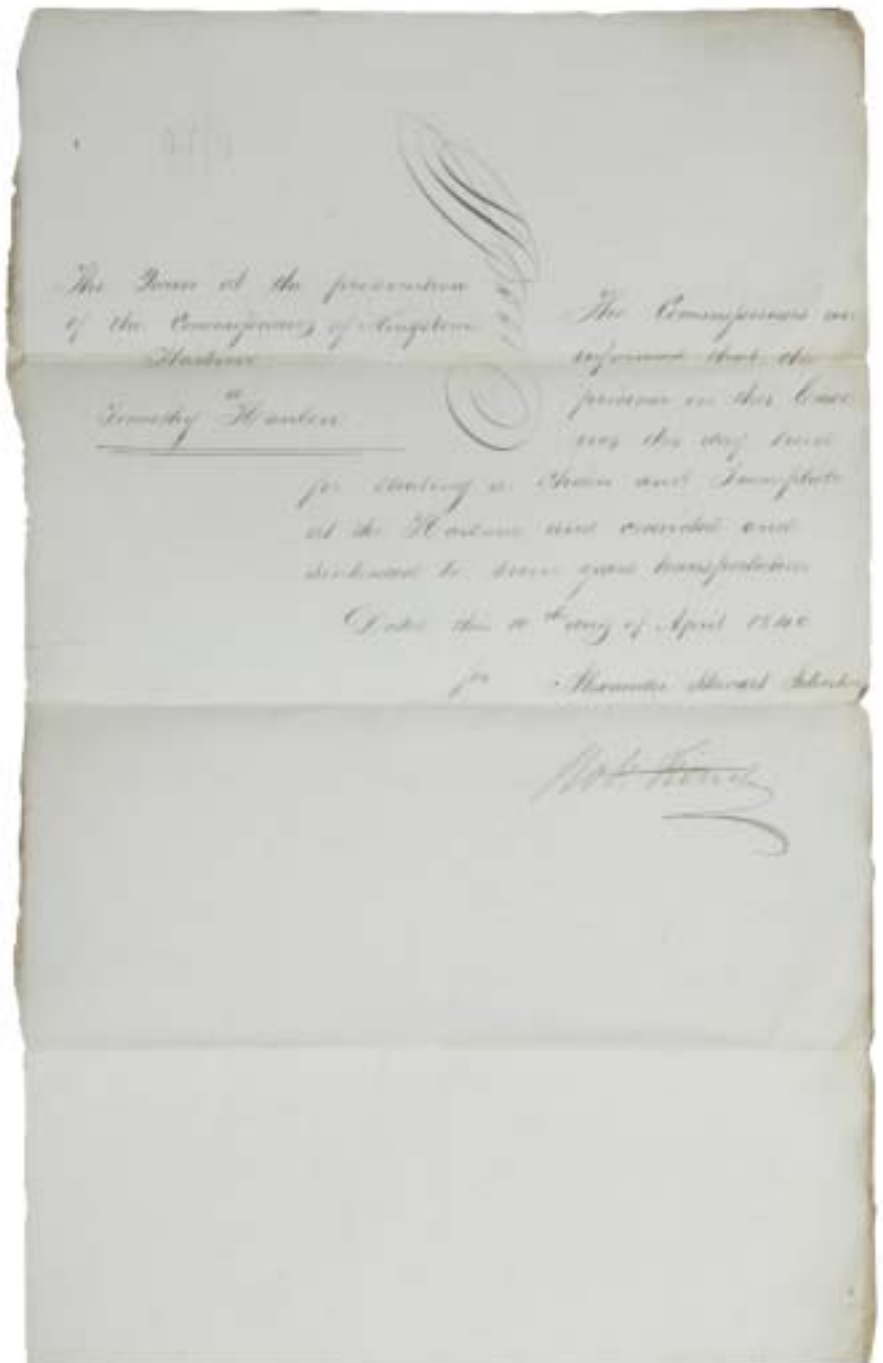 The Queen at the prosecution
of the Commissioners of Kingstown
Harbour
a
Timothy Hanlon
The Commissioners are
informed that the
prisoner in this Case
was this day tried
for stealing a Chain and
at the Harbour and convicted and
sentenced to seven years transportation
Dated this 10th day of April 1840
for Alexander Stewart